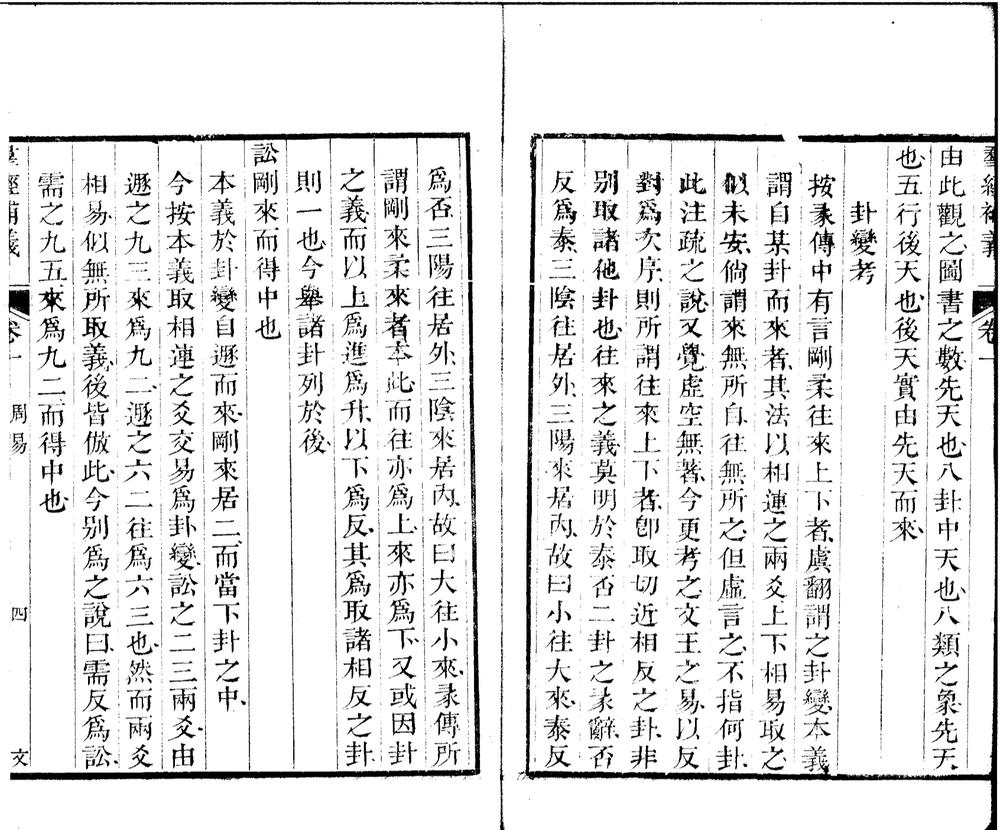 羣經補義 卷一
由此觀之圖書之數先天也八卦中天也八類之象先天
也五行後天也後天實由先天而來
卦變考
按彖傳中有言剛柔往來上下者虞翻謂之卦變本義
謂自某卦而來者其法以相連之兩爻上下相易取之
似未安倘謂來無所自往無所之但虛言之不指何卦
此注疏之說又覺虛空無著今更考之文王之易以反
對爲次序則所謂往來上下者卽取切近相反之卦非
别取諸他卦也往來之義莫明於泰否二卦之彖辭否
反爲泰三陰往居外三陽來居內故曰小往大來泰反
爲否三陽往居外三陰來居內故曰大往小來彖傳所
謂剛來柔來者本此而往亦爲上來亦爲下又或因卦
之義而以上爲進爲升以下爲反其爲取諸相反之卦
則一也今舉諸卦列於後
訟剛來而得中也
本義於卦變自遯而來剛來居二而當下卦之中
今按本義取相連之爻交易爲卦變訟之二三兩爻由
遯之九三來爲九二遯之六二往爲六三也然而兩爻
相易似無所取義後皆倣此今别爲之說曰需反爲訟
需之九五來爲九二而得中也
羣經補義 卷一 周易 四 文